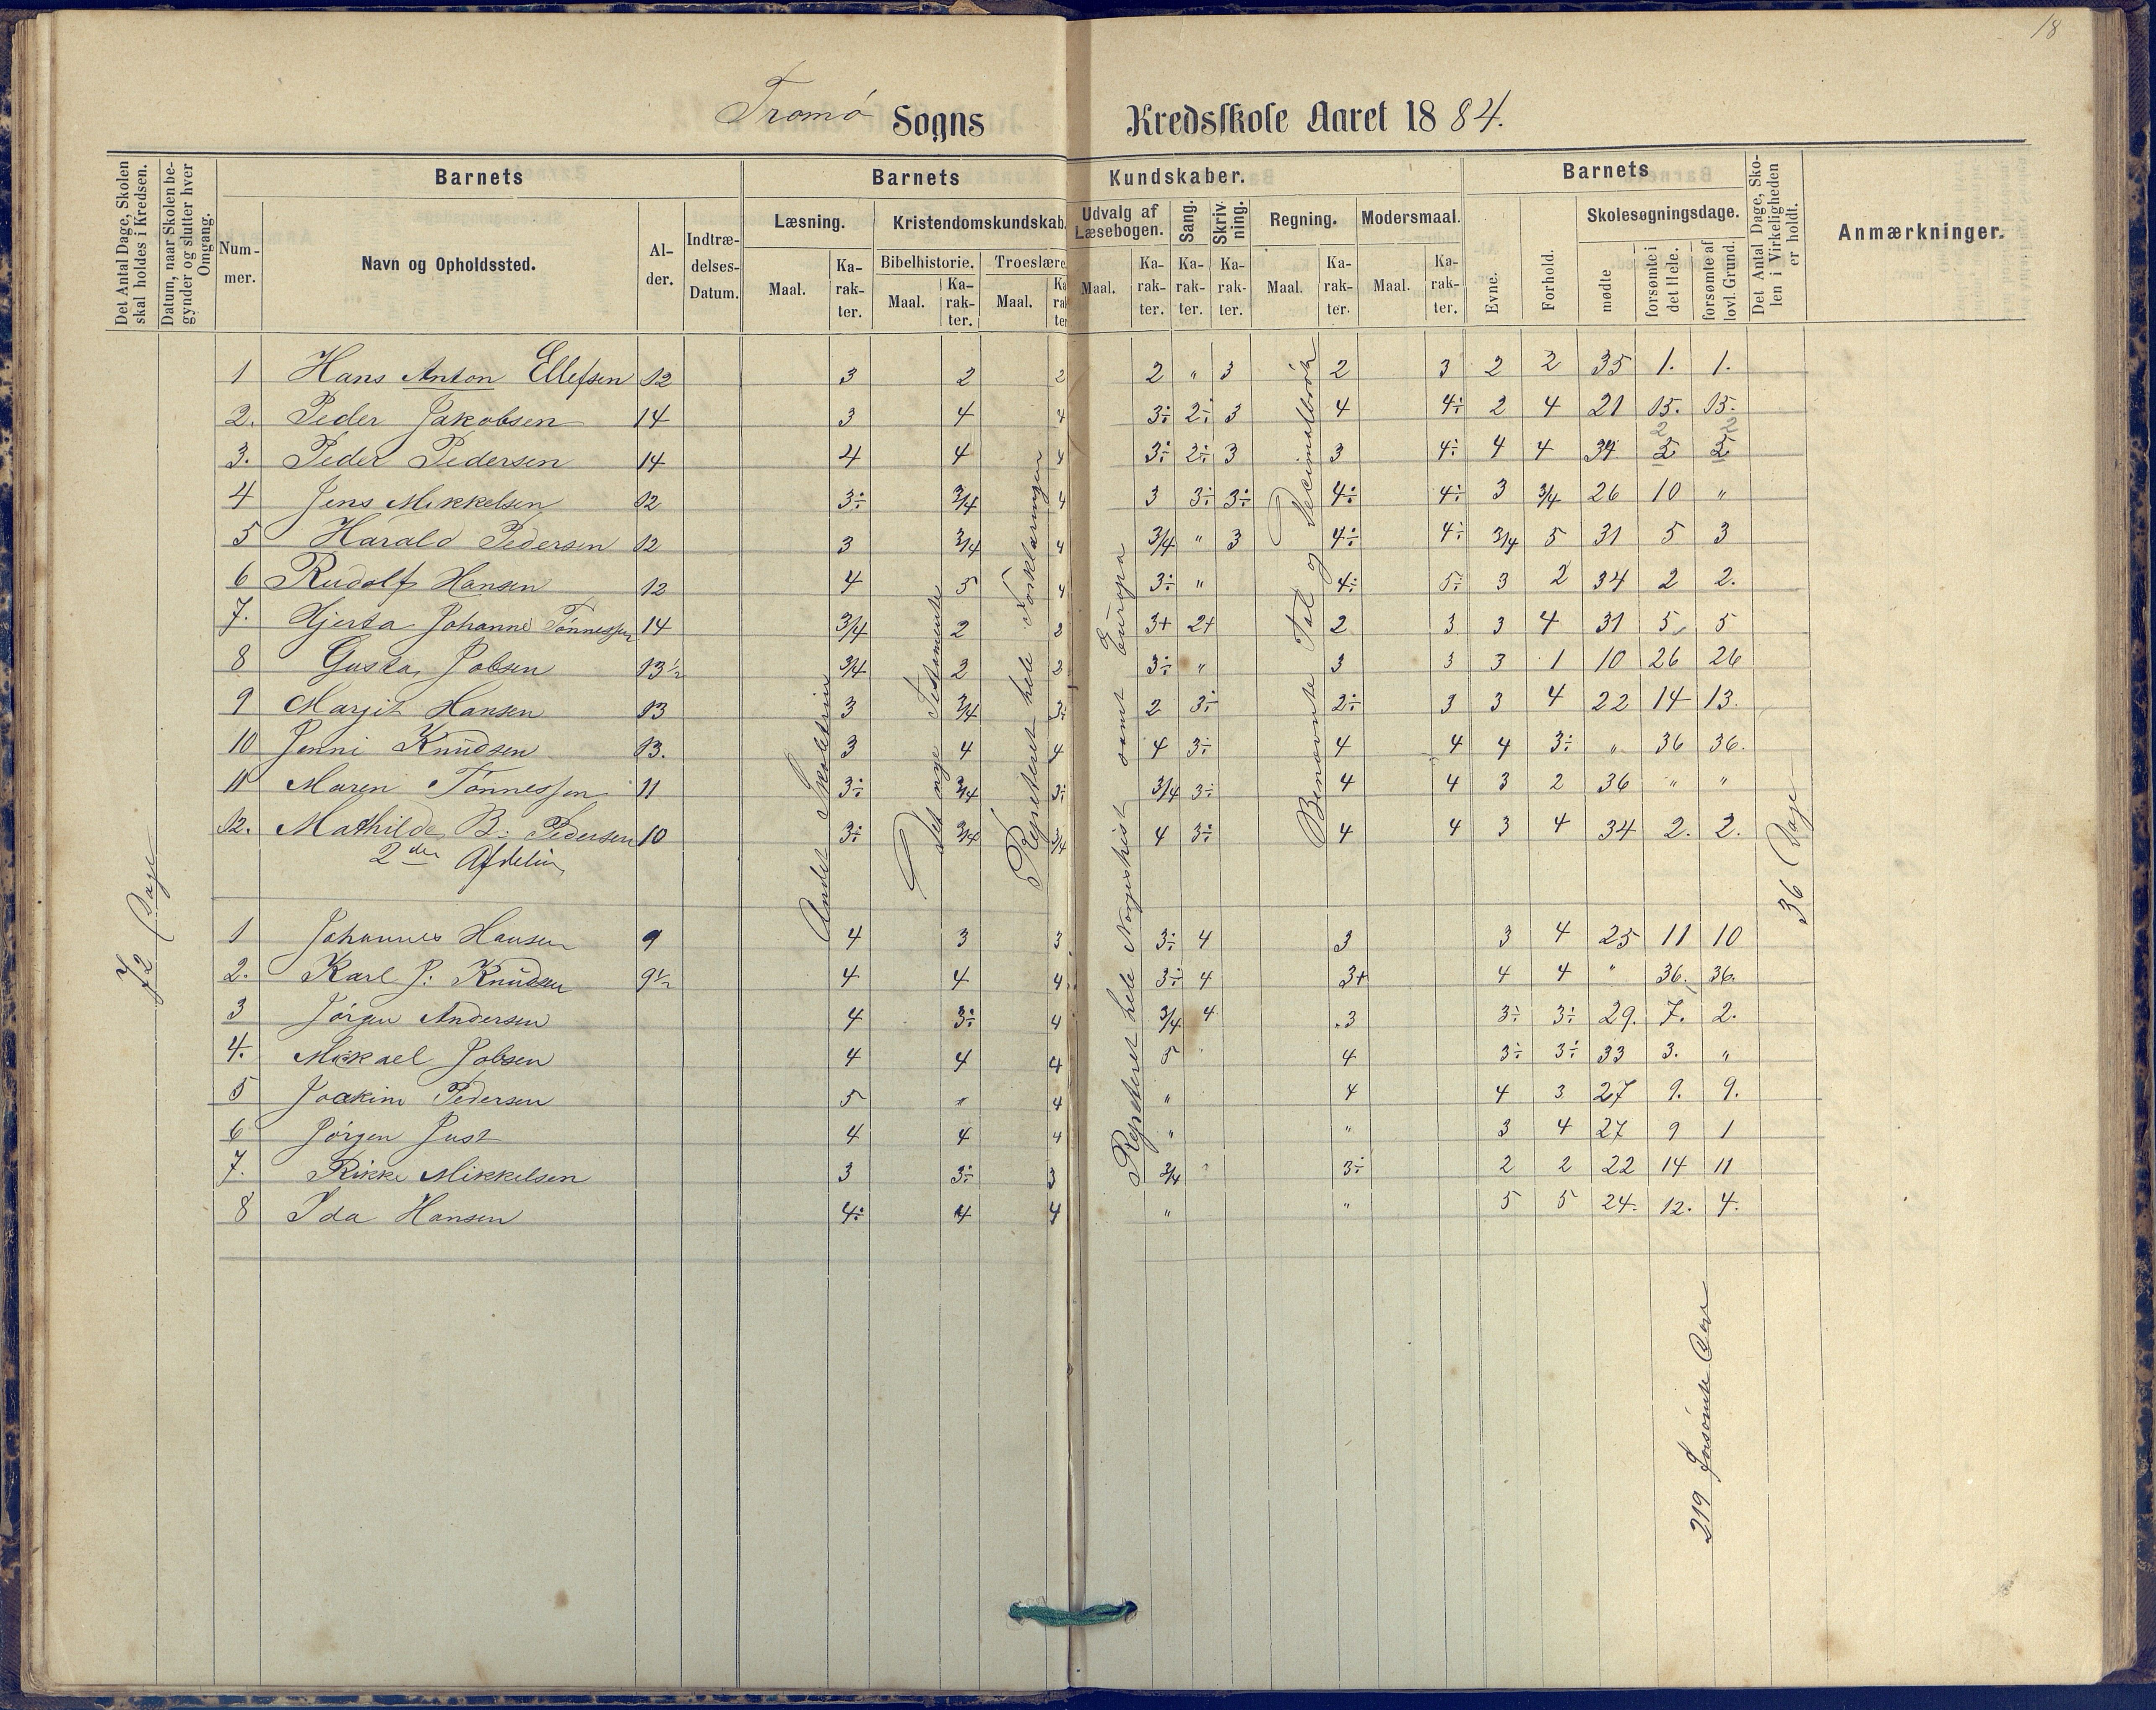 18
Tromø Sogns Kredsskole Aaret 1884.
Det Antal Dage, Skolen skal holdes i Kredsen.
Datum, naar Skolen begynder og slutter hver Omgang.
Barnets
Barnets Kundskaber.
Barnets
Det Antal Dage, Skolen i Virkeligheden er holdt.
Anmærkninger.
Nummer.
Navn og Opholdssted.
Alder.
Indtrædelses-Datum.
Læsning.
Kristendomskundskab.
Udvalg af Læsebogen.
Sang.
Skrivning.
Regning.
Modersmaal.
Evne.
Forhold.
Skolesøgningsdage.
Bibelhistorie.
Troeslære.
Maal.
Karakter.
Maal.
Karakter.
Maal.
Karakter
Maal.
Karakter.
Karakter.
Karakter.
Maal.
Karakter.
Maal.
Karakter.
mødte
forsømte i det Hele.
forsømte af lovl. Grund.
1 Hans Anton Ellefsen 12 3 2 2 2 " 3 2 3 2 2 35 1. 1.
2. Peder Jakobsen 14 3 4 4 3÷ 2÷ 3 4 4÷ 2 4 21 15. 15.
3. Peder Pedersen 14 4 4 4 3÷ 2÷ 3 3 4÷ 4 4 34 2 2
4 Jens Mikkelsen 12 3÷ 3/4 4 3 3÷ 3÷ 4÷ 4÷ 3 3/4 26 10 "
5 Harald Pedersen 12 3 3/4 4 3/4 " 3 4÷ 4÷ 3/4 5 31 5 3
6 Rudolf Hansen 12 4 5 4 3÷ " 4÷ 5÷ 3 2 34 2 2.
7. Hjerta Johanne Tønnessen 14 3/4 2 3 3+ 2+ 2 3 3 4 31 5 5
8 Gusta Jobsen 13½ 3/4 2 3 3÷ " 3 3 3 1 10 26 26
9 Margit Hansen 13 3 3/4 3÷ 2 3÷ 2÷ 3 3 4 22 14 13.
10 Jenni Knudsen 13. 3 4 4 4 3÷ 4 4 4 3÷ " 36 36.
11 Maren Tønnessen 11 3÷ 3/4 3÷ 3/4 3÷ 4 4 3 2 36 " "
12. Mathilde B: Pedersen 10 3÷ 3/4 3/4 4 3÷ 4 4 3 4 34 2. 2.
2den Afdelin
1 Johannes Hansen 9 4 3 3 3÷ 4 3 3 4 25 11 10
2. Karl J: Knudsen 9½ 4 4 4 3÷ 4 3+ 4 4 " 36. 36.
3 Jørgen Andersen 4 3÷ 4 3/4 4 3 3÷ 3÷ 29. 7. 2.
4. Mikael Jobsen 4 4 4 5 4 3÷ 3÷ 33 3. "
5 Joakim Pedersen 5 " 4 " 4 4 3 27 9. 9.
6 Jørgen Just 4 4 4 " " 3 4 27 9 1
7. Rikke Mikkelsen 3 3÷ 3 3/4 " 3÷ 2 2 22 14 11
8 Ida Hansen 4÷ 4 4 " " 5 5 24. 12. 4.
72 Dage
Andet Skoletrin
Det nye Testamente
Repeteret hele Forklaringen
Repeteret hele Norgeshist samt Europa
Benævnte Tal og Decimalbrøk
36 Dage
219 forsømte